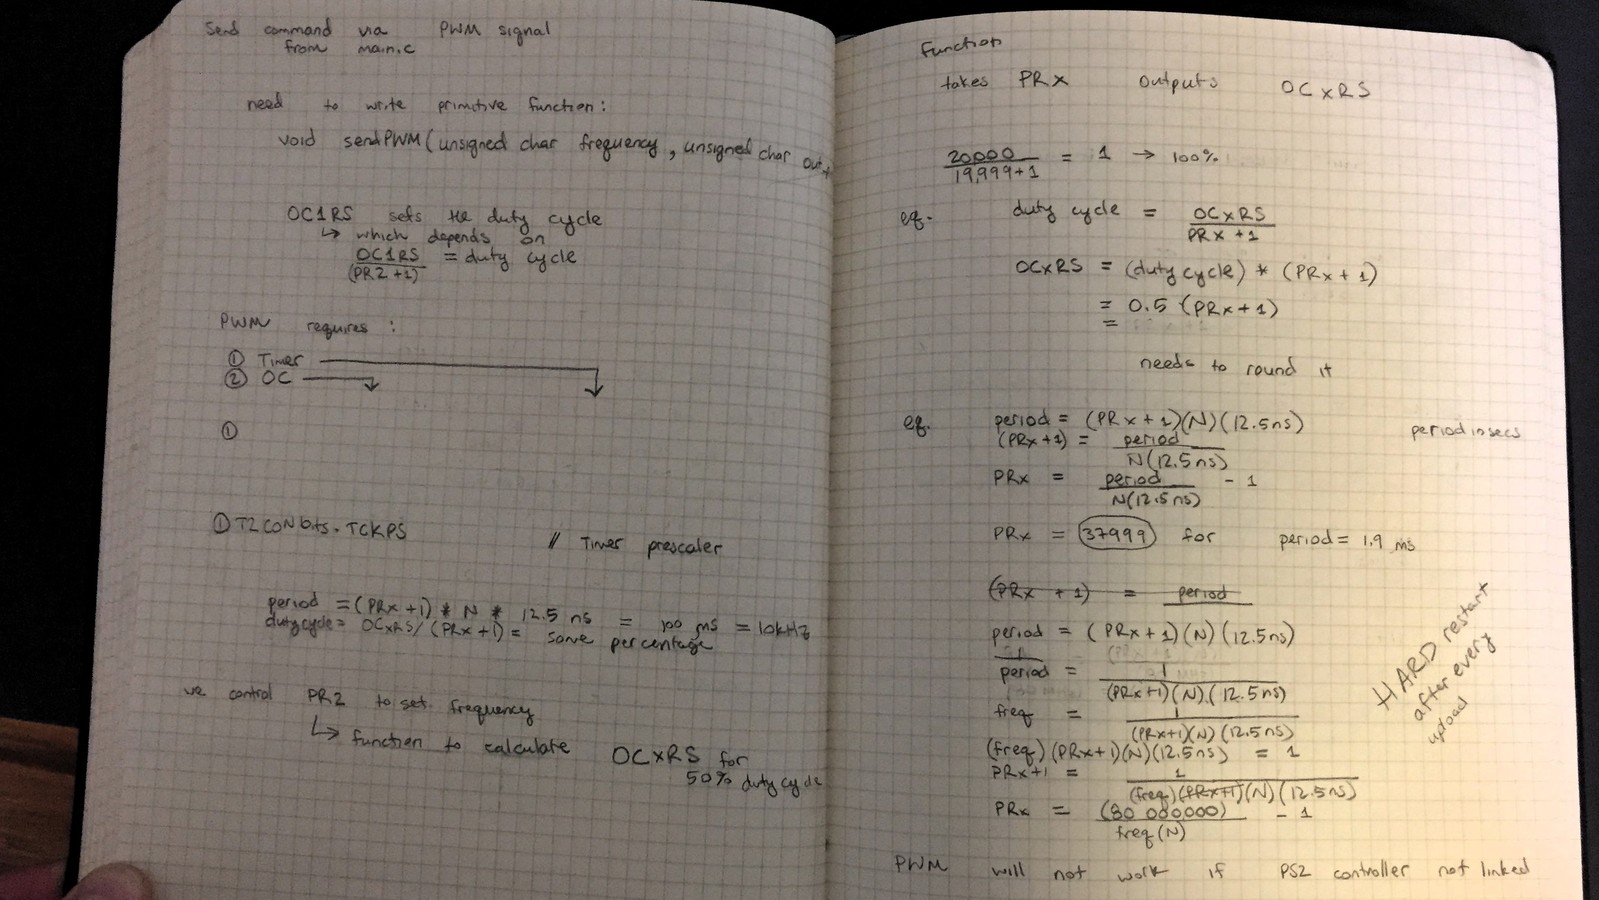 Send command via PWM signal
from main.c
need to write primitive function:
void sendPWM(unsigned char frequency, unsigned char
OC1RS sets the duty cycle
↳ which depends on
OC1RS / (PR2+1) = duty cycle
PWM requires:
① Timer
② OC
①
① T2CONbits.TCKPS // Timer prescaler
period = (PRx+1) * N * 12.5 ns = 100 ms = 10kHz
dutycycle = OCxRS/(PRx+1) = some percentage
we control PR2 to set frequency
↳ function to calculate OCxRS for
50% duty cycle
function
takes PRx outputs OCxRS
20,000 / 19,999+1 = 1 → 100%
eq. duty cycle = OCxRS / PRx+1
OCxRS = (duty cycle) * (PRx+1)
= 0.5 (PRx+1)
=
needs to round it
eq. period = (PRx+1)(N)(12.5ns) period in secs
(PRx+1) = period / N(12.5ns)
PRx = period / N(12.5ns) - 1
PRx = 37999 for period = 1.9 ms
(PRx + 1) = period
period = (PRx+1)(N)(12.5ns)
1 / period = 1 / (PRx+1)(N)(12.5ns)
freq = 1 / (PRx+1)(N)(12.5ns)
(freq)(PRx+1)(N)(12.5ns) = 1
PRx+1 = 1 / (freq)(PRx+1)(N)(12.5ns)
PRx = (80 000,000) / freq(N) - 1
HARD restart
after every
upload
PWM will not work if PS2 controller not linked